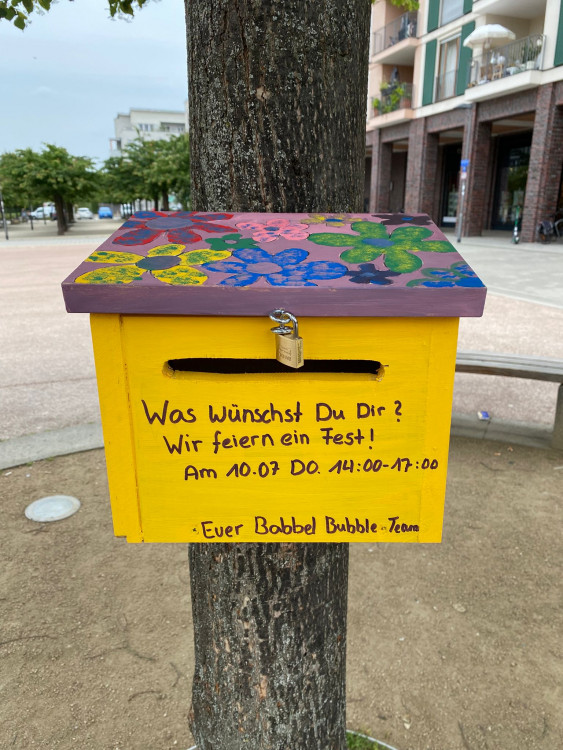 Was wünschst Du Dir?
Wir feiern ein Fest!
Am 10.07 DO. 14:00-17:00
Euer Babbel Bubble-Team